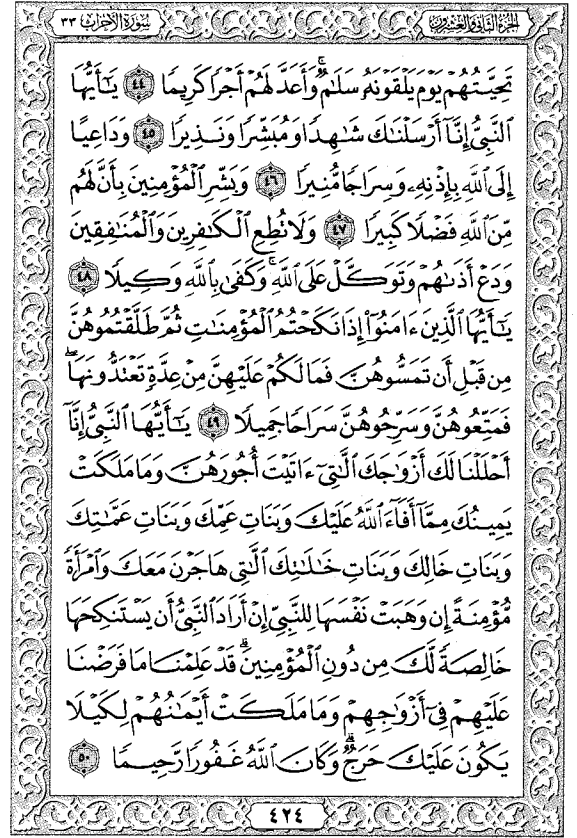 سُورَةُ الأَحْزَابِ ٣٣
الجُزْءُ الثَّانِي وَالعِشْرُونَ
تَحِيَّتُهُمْ يَوْمَ يَلْقَوْنَهُۥ سَلَـٰمٌۚ وَأَعَدَّ لَهُمْ أَجْرًا كَرِيمًا ٤٤ يَـٰٓأَيُّهَا
ٱلنَّبِىُّ إِنَّآ أَرْسَلْنَـٰكَ شَـٰهِدًا وَمُبَشِّرًا وَنَذِيرًا ٤٥ وَدَاعِيًا
إِلَى ٱللَّهِ بِإِذْنِهِۦ وَسِرَاجًا مُّنِيرًا ٤٦ وَبَشِّرِ ٱلْمُؤْمِنِينَ بِأَنَّ لَهُم
مِّنَ ٱللَّهِ فَضْلًا كَبِيرًا ٤٧ وَلَا تُطِعِ ٱلْكَـٰفِرِينَ وَٱلْمُنَـٰفِقِينَ
وَدَعْ أَذَىٰهُمْ وَتَوَكَّلْ عَلَى ٱللَّهِۚ وَكَفَىٰ بِٱللَّهِ وَكِيلًا ٤٨
يَـٰٓأَيُّهَا ٱلَّذِينَ ءَامَنُوٓا۟ إِذَا نَكَحْتُمُ ٱلْمُؤْمِنَـٰتِ ثُمَّ طَلَّقْتُمُوهُنَّ
مِن قَبْلِ أَن تَمَسُّوهُنَّ فَمَا لَكُمْ عَلَيْهِنَّ مِنْ عِدَّةٍ تَعْتَدُّونَهَاۖ
فَمَتِّعُوهُنَّ وَسَرِّحُوهُنَّ سَرَاحًا جَمِيلًا ٤٩ يَـٰٓأَيُّهَا ٱلنَّبِىُّ إِنَّآ
أَحْلَلْنَا لَكَ أَزْوَٰجَكَ ٱلَّـٰتِىٓ ءَاتَيْتَ أُجُورَهُنَّ وَمَا مَلَكَتْ
يَمِينُكَ مِمَّآ أَفَآءَ ٱللَّهُ عَلَيْكَ وَبَنَاتِ عَمِّكَ وَبَنَاتِ عَمَّـٰتِكَ
وَبَنَاتِ خَالِكَ وَبَنَاتِ خَـٰلَـٰتِكَ ٱلَّـٰتِى هَاجَرْنَ مَعَكَ وَٱمْرَأَةً
مُّؤْمِنَةً إِن وَهَبَتْ نَفْسَهَا لِلنَّبِىِّ إِنْ أَرَادَ ٱلنَّبِىُّ أَن يَسْتَنكِحَهَا
خَالِصَةً لَّكَ مِن دُونِ ٱلْمُؤْمِنِينَۗ قَدْ عَلِمْنَا مَا فَرَضْنَا
عَلَيْهِمْ فِىٓ أَزْوَٰجِهِمْ وَمَا مَلَكَتْ أَيْمَـٰنُهُمْ لِكَيْلَا
يَكُونَ عَلَيْكَ حَرَجٌۗ وَكَانَ ٱللَّهُ غَفُورًا رَّحِيمًا ٥٠
٤٢٤